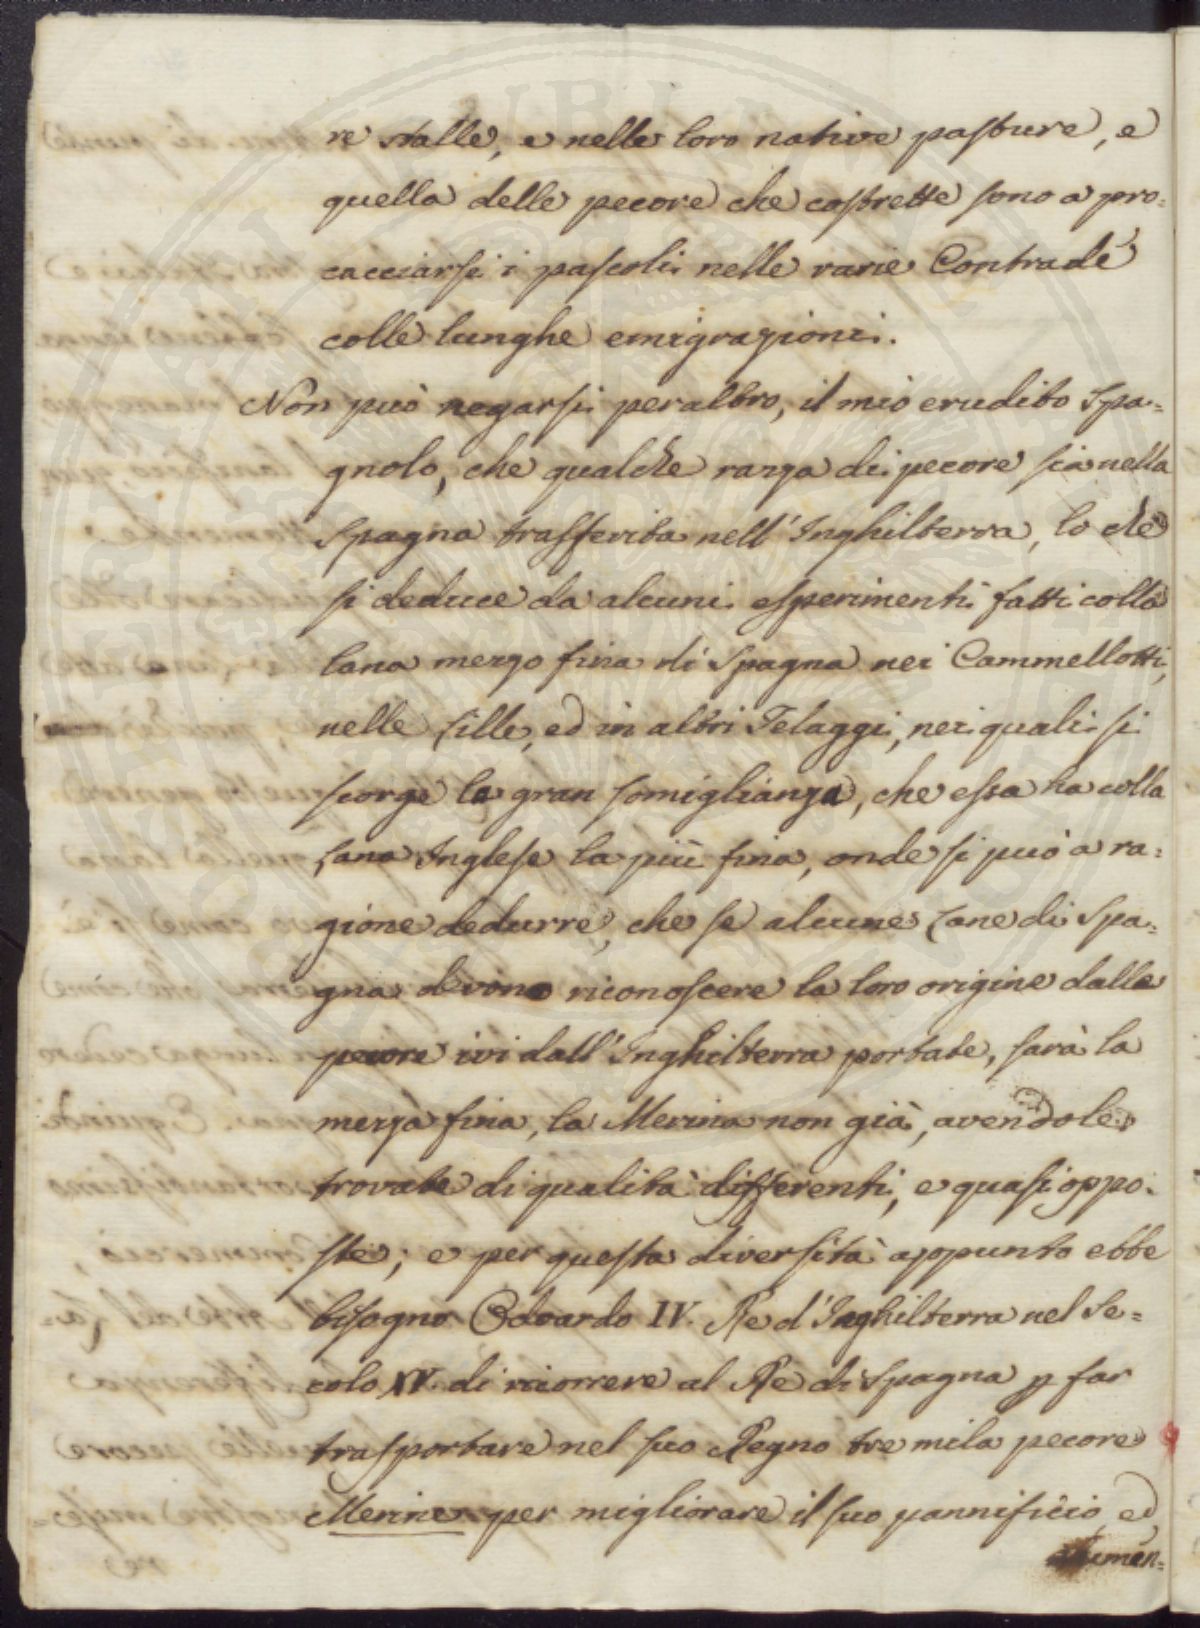 re stalle, e nelle loro native pasture, e
quella delle pecore che costrette sono a pro=
cacciarsi i pascoli nelle varie Contrade
colle lunghe emigrazioni.
Non può negarsi peraltro, il mio erudito Spa=
gnolo, che qualche razza di pecore sia nella
Spagna trasferita nell'Inghilterra, lo che
si deduce da alcuni esperimenti fatti colla
lana mezzo fina di Spagna nei Cammellotti,
nelle Lille, ed in altri Telaggi, nei quali si
scorge la gran somiglianza, che essa ha colla
Lana Inglese la più fina, onde si può a ra=
gione dedurre, che se alcune Lane di Spa=
gna devono riconoscere la loro origine dalle
pecore ivi dall'Inghilterra portate, sarà la
mezza fina, la Merina non già, avendole
trovate di qualità differenti, e quasi oppo=
ste; e per questa diversità appunto ebbe
bisogno Odoardo IV. Re d'Inghilterra nel Se=
colo XV. di ricorrere al Re di Spagna p far
trasportare nel suo Regno tre mila pecore
Merine per migliorare il suo pannificio, ed